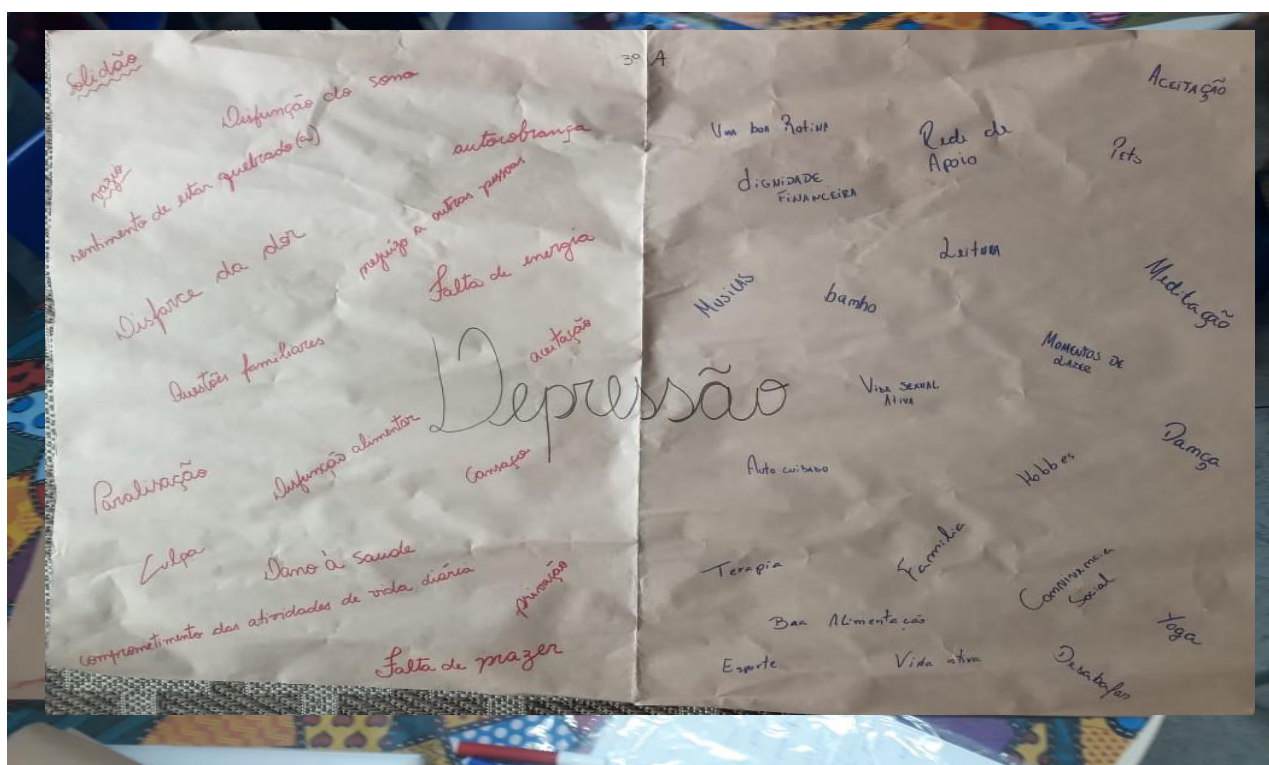 3º A
Solidão
Disfunção do sono
autocobrança
vazio
sentimento de estar quebrado(a)
prejuízo a outras pessoas
Disfarce da dor
Falta de energia
Questões familiares
aceitação
Depressão
Paralisação
Disfunção alimentar
Cansaço
Culpa
Dano à saude
privação
comprometimento das atividades de vida diária
Falta de prazer
ACEITAÇÃO
Uma boa Rotina
Rede de
Apoio
Pets
DIGNIDADE
FINANCEIRA
Leitura
Musicas
banho
Meditação
MOMENTOS DE
LAZER
VIDA SEXUAL
ATIVA
Dança
Auto cuidado
Hobbes
Terapia
Família
Convivencia
Social
Boa Alimentação
Yoga
Esporte
Vida ativa
Desabafar